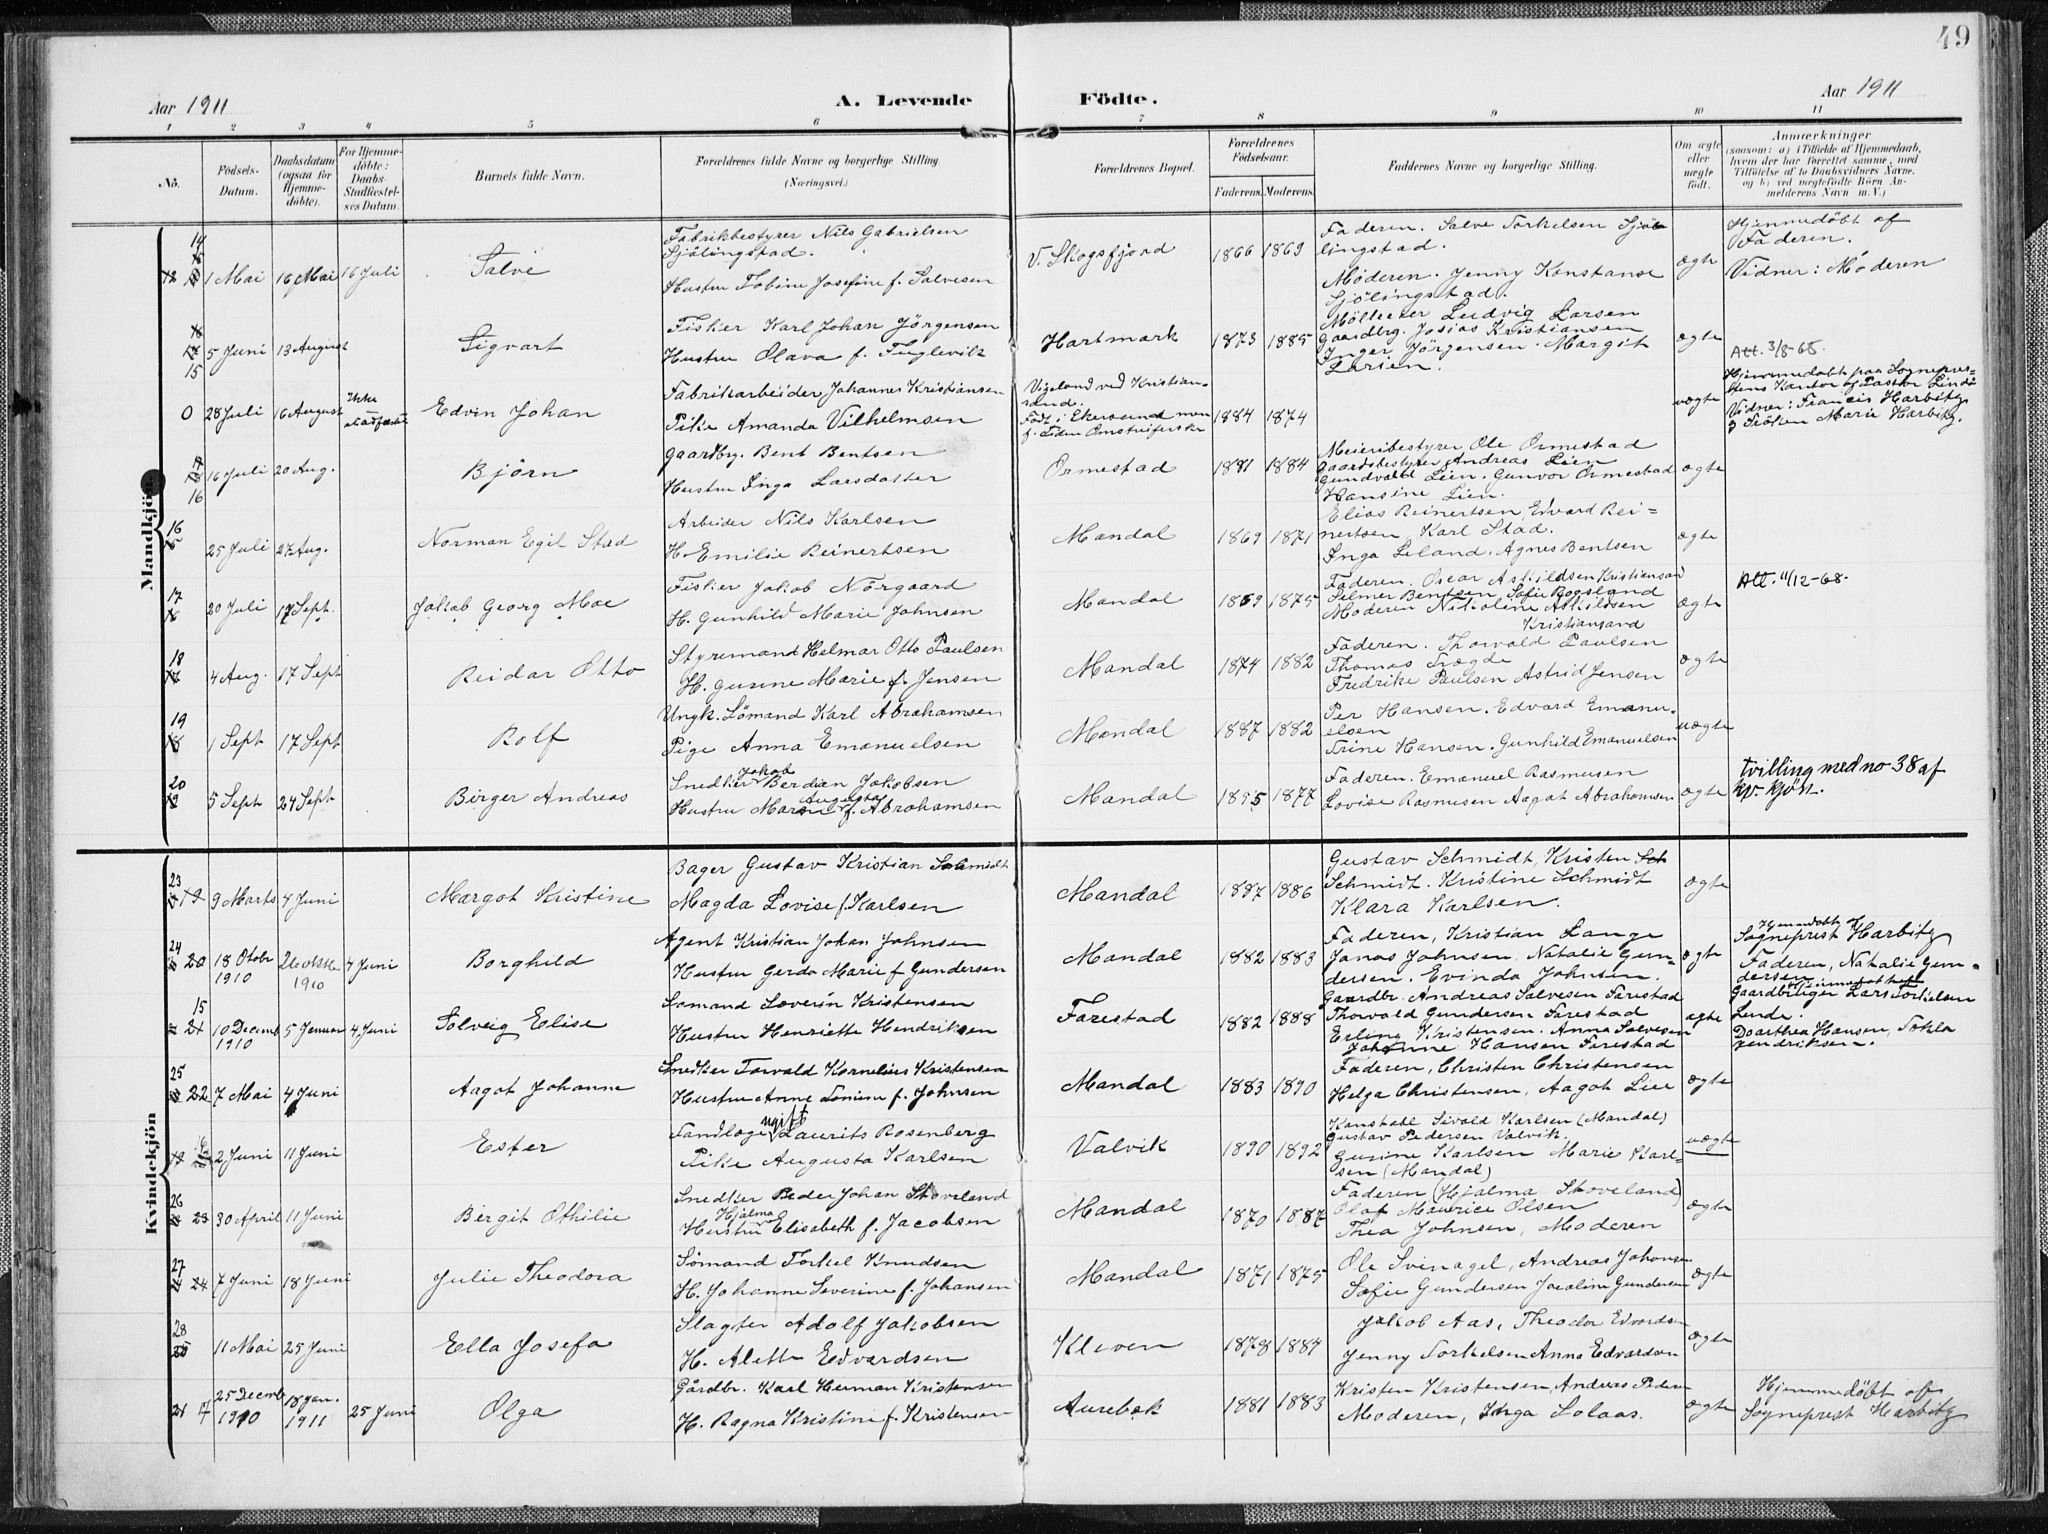 49
Aar 1911
A. Levende
Födte.
Aar 1911
1 2 3 4 5 6 7 8 9 10 11
No.
Födsels-
Datum.
Daabsdatum
(ogsaa for
Hjemme-
döbte).
For Hjemme-
döbte:
Daabs-
Stadfæstel-
ses Datum.
Barnets fulde Navn.
Forældrenes fulde Navne og borgerlige Stilling.
(Næringsvei.)
Forældrenes Bopæl.
Forældrenes
Födselsaar.
Faderens. Moderens.
Faddernes Navne og borgerlige Stilling.
Om ægte
eller
uægte
födt.
Anmærkninger
(saasom: a) i Tilfælde af Hjemmedaab,
hvem der har forrettet samme, med
Tilföielse af to Daabsvidners Navne,
og b) ved uægtefödte Börn An-
melderens Navn m. V.)
Mandkjön
14
1 Mai 16 Mai 16 Juli Salve
Fabrikbestyrer Nils Gabrielsen
Sjölingstad.
Hustru Tobine Josefine f. Salvesen
V. Skogsfjord 1866 1869
Faderen. Salve Torkelsen Sjö
lingstad.
Moderen. Jenny Konstanse
Sjölingstad.
ægte
Hjemmedöbt af
Faderen.
Vidner: Moderen
15
5 Juni 13 August Sigvart
Fisker Karl Johan Jörgensen
Hustru Olava f. Fuglevik
Hartmark 1873 1885
Ludvig Larsen
Gaardbrg. Josias Kristiansen
Inger Jörgensen. Margit
Larsen.
ægte
Att. 3/8-65.
0 28 Juli 16 August Ikke
Edvin Johan
Fabrikarbeider Johannes Kristiansen
Pike Amanda Vilhelmsen
Vigeland ved Kristian-
sand.
Född i Ekersund men
1884 1874
uægte
Hjemmedöbt paa Sogneprs-
tens Kontor af Pastor Linde
Vidner: Francis Harbitz
og Fröken Marie Harbitz.
16
16 Juli 20 Aug. Björn
Gaardbrg. Bent Bentsen
Hustru Inga Larsdatter
Ormestad 1881 1884
Meieribestyrer Ole Ormestad
Gaardsbestyrer Andreas Lien
Gundvald Lien. Gunvor Ormestad
Hansine Lien.
ægte
16
25 Juli 27 Aug. Norman Egil Stad
Arbeider Nils Karlsen
H. Emilie Reinertsen
Mandal 1869 1871
Elias Reinertsen, Edvard Rei-
nertsen Karl Stad.
Inga Leland. Agnes Bentsen
ægte
17
20 Juli 17 Sept. Jakob Georg Moe
Fisker Jakob Nörgaard
H. Gunhild Marie Johnsen
Mandal 1869 1875
Faderen. Oscar Askildsen Kristiansand
Selmer Bentsen, Sofie Rogsland
Moderen Nikoline Askildsen
Kristiansand
ægte
Att. 11/12-68-
18
4 Aug. 17 Sept Reidar Otto
Styremand Helmar Otto Paulsen
H. Gusine Marie f. Jensen
Mandal 1874 1882
Faderen. Thorvald Paulsen
Thomas Trægde
Fredrike Paulsen Astrid Jensen
ægte
19
1 Sept 17 Sept Rolf
Ungk. Sömand Karl Abrahamsen
Pige Anna Emanuelsen
Mandal 1887 1882
Per Hansen. Edvard Emanu-
elsen
Trine Hansen. Gunhild Emanuelsen
uægte
20
5 Sept 24 Sept Birger Andreas
Jakob
Snedker Berdian Jakobsen
Augusta
Hustru Marie f. Abrahamsen
Mandal 1875 1877
Faderen. Emanuel Rasmusen
Lovise Rasmusen Aagot Abrahamsen
ægte
tvilling med no 38 af
kv. kjön.
Kvindekjön
23
19 9 Marts 4 Juni Margot Kristine
Bager Gustav Kristian Schmidt
Magda Lovise f. Karlsen
Mandal 1887 1886
Gustav Schmidt, Kristen Sch
Schmidt. Kristine Schmidt
Klara Karlsen.
ægte
24
20 18 Otobr 26 oktbr 4 Juni
1910 1910
Borghild
Agent Kristian Johan Johnsen
Hustru Gerda Marie f Gundersen
Mandal 1882 1883
Faderen, Kristian Lange
Jonas Johnsen. Natalie Gun-
dersen. Evinda Johnsen.
ægte
Hjemmedöbt
Sogneprest Harbitz
Faderen, Natalie Gun-
dersen
15
21 10 Decemb 5 Januar 4 Juni
1910
Solveig Elise
Sömand Severin Kristensen
Hustru Henriette Hendriksen
Farestad 1882 1888
Gaardbr. Andreas Salvesen Farestad
Thorvald Gundersen Farestad
Erling Kristensen. Anna Salvesen
Johanne Hansen Farestad
ægte
Gaardbruger Lars Torkelsen
Lende.
Dorthea Hansen, Tekla
Hendriksen.
25
22 7 Mai 4 Juni Aagot Johanne
Snedker Torvald Kornelius Kristensen
Hustru Anne Tomine f. Johnsen
Mandal 1883 1890
Faderen, Christen Christensen
Helga Christensen, Aagot Lie
ægte
16
2 Juni 11 Juni Ester
ugift
Tandlæge Laurits Rosenberg
Pike Augusta Karlsen
Valvik 1890 1892
Konstabl Sivald Karlsen (Mandal)
Gustav Pedersen Valvik.
Gusine Karlsen Marie Karl-
sen (Mandal)
uægte
26
23 30 April 11 Juni Birgit Othilie
Snedker Peder Johan Stoveland
Hjalma
Hustru Elisabeth f. Jacobsen
Mandal 1870 1887
Faderen (Hjalma Stoveland)
Olaf Maurice Olsen
Thea Johnsen, Moderen
ægte
27
24 7 Juni 18 Juni Julie Theodora
Sömand Torkel Knudsen
H. Johanne Severine f. Johansen
Mandal 1871 1875
Ole Svinagel, Andreas Johansen
Sofie Gundersen Jacoline Gundersen
ægte
28
25 11 Mai 25 Juni Ella Josefa
Slagter Adolf Jakobsen
H. Alette Edvardsen
Kleven 1878 1884
Jakob Aas, Theodor Edvardsen
Jenny Torkelsen Anna Edvardsen
ægte
17 25 Decmb 18 Jan. 25 Juni
1910 1911
Olga
Gårdbr. Karl Herman Kristensen
H. Ragna Kristine f. Kristensen
Aurebæk 1881 1883
Kristen Kristensen, Andreas Peders
Moderen, Inga Solaas.
ægte
Hjemmedöbt af
Sogneprest Harbitz